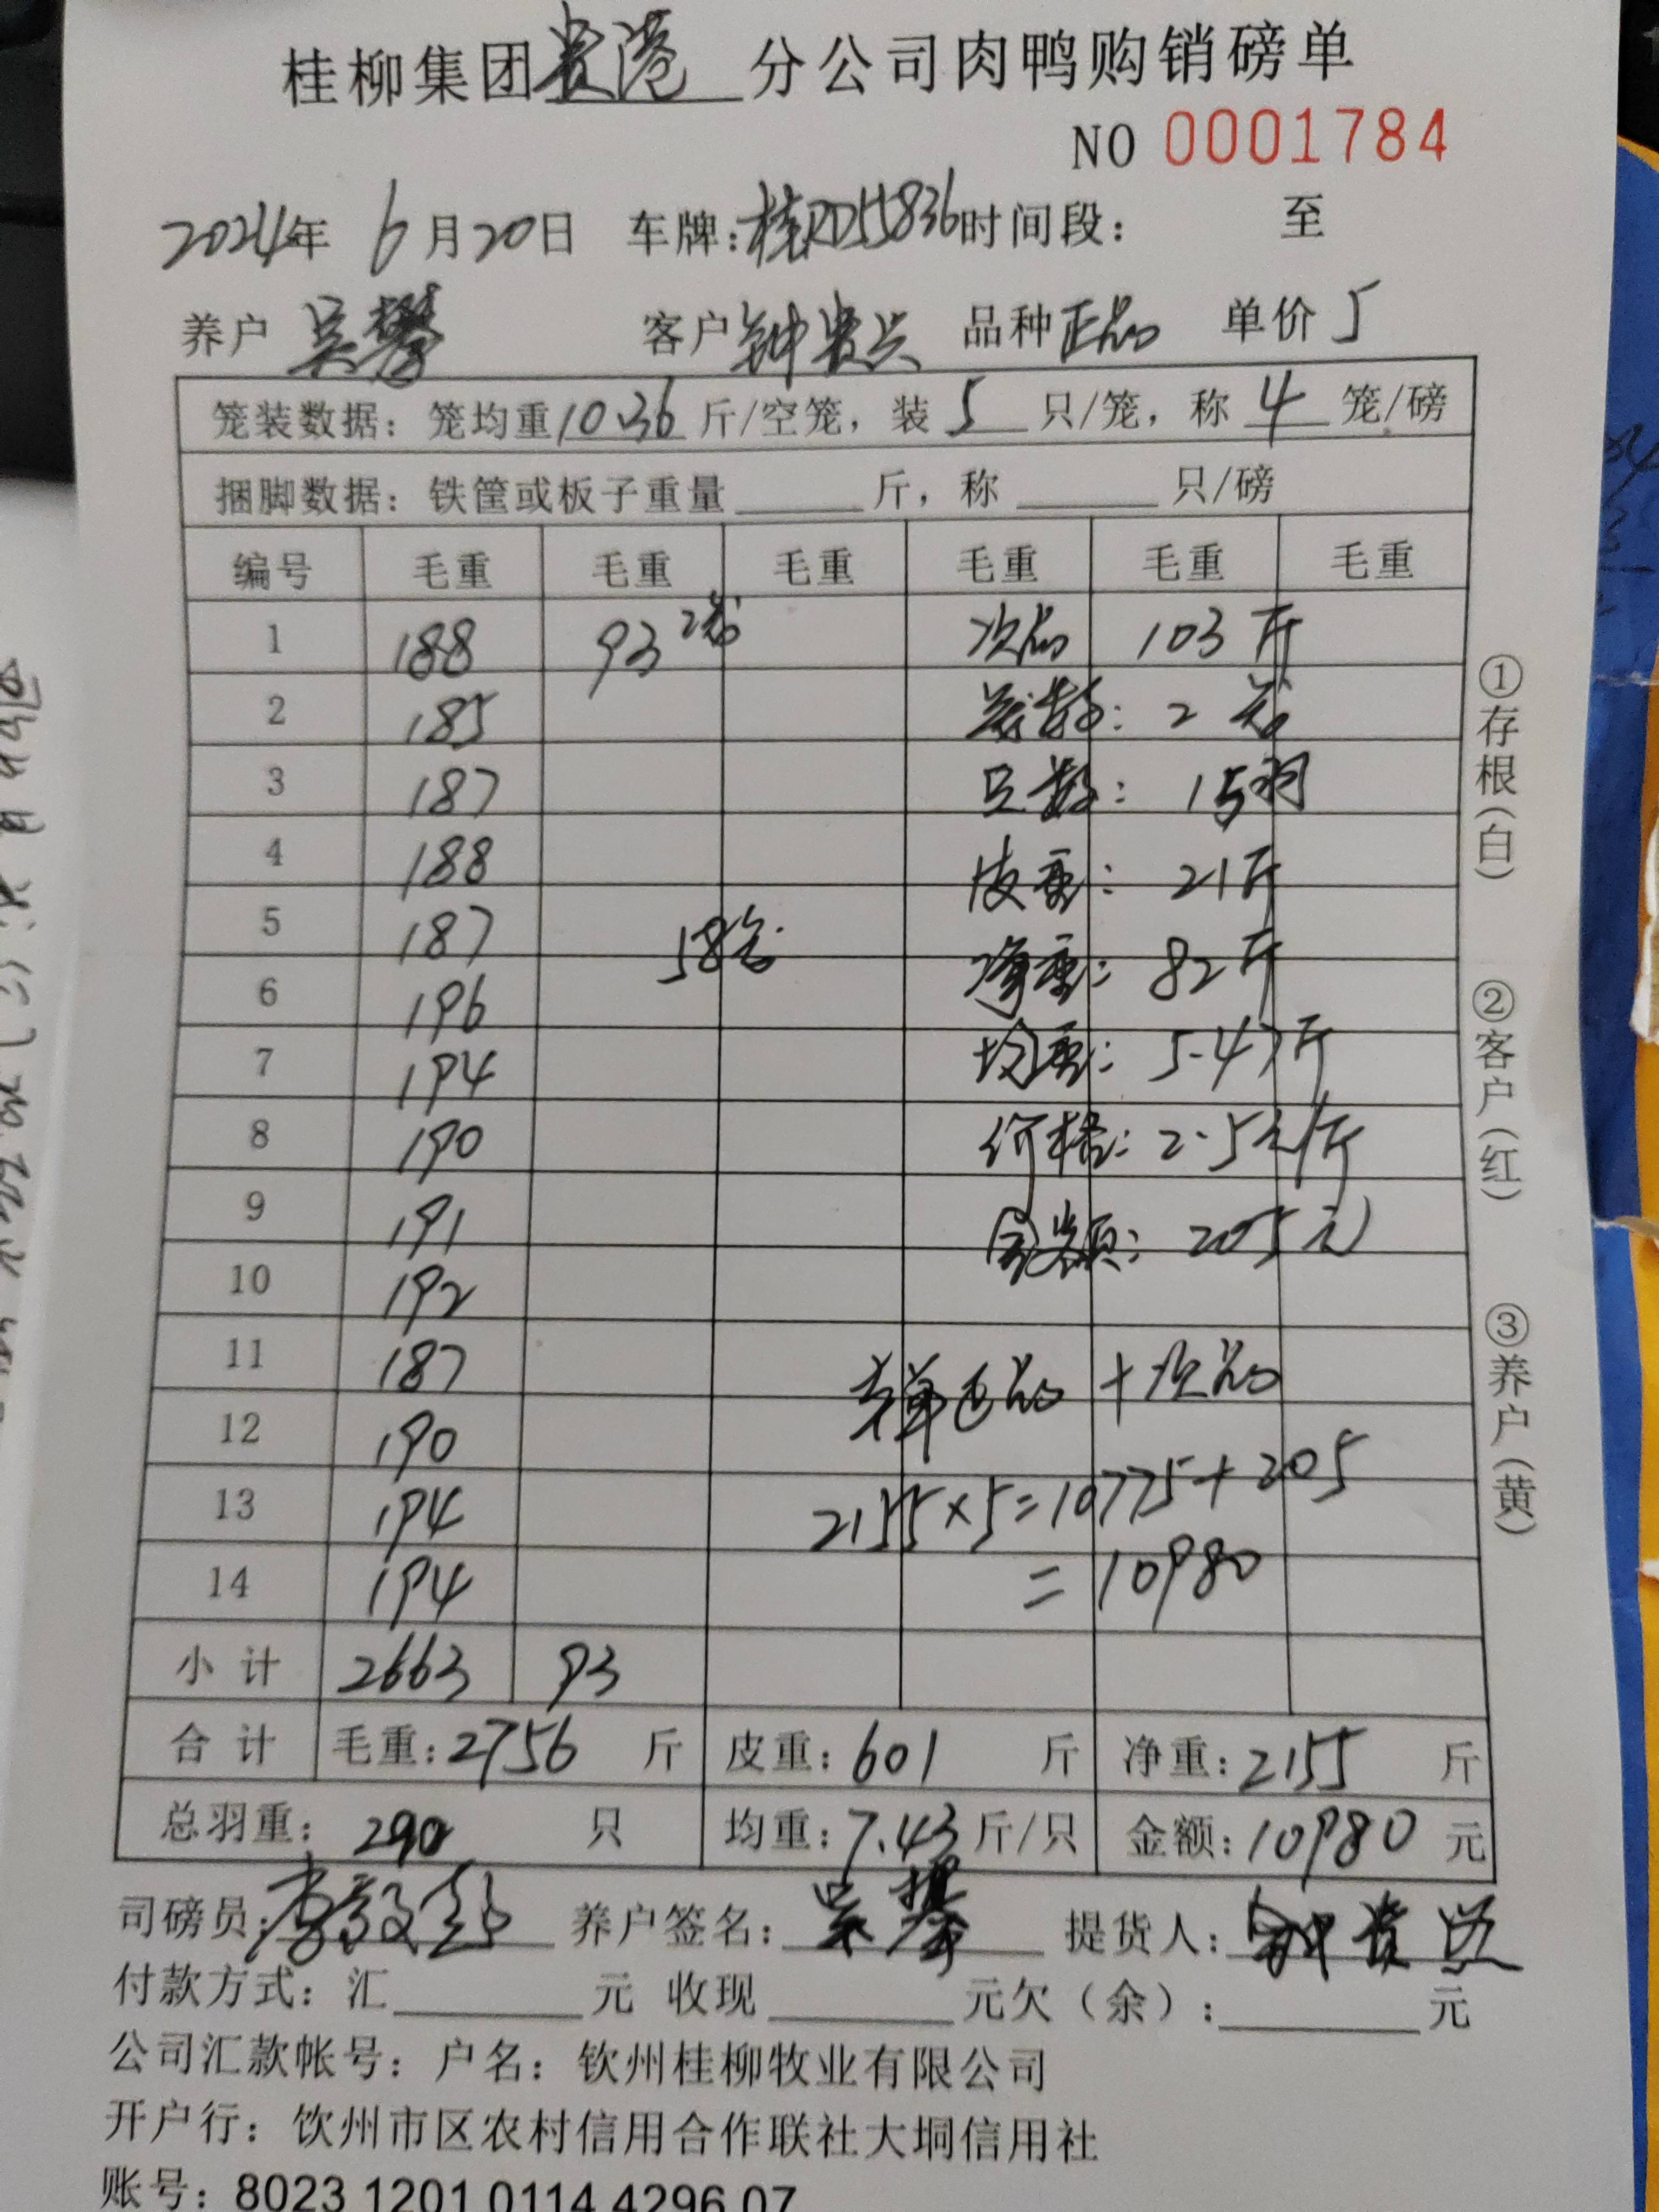 桂柳集团贵港 分公司肉鸭购销磅单
NO 0001784
2024年 6月20日 车牌:桂RD5836时间段: 至
养户 吴攀 客户 钟贵兴 品种 正品 单价 5
笼装数据: 笼均重10.36斤/空笼, 装 5 只/笼, 称 4 笼/磅
捆脚数据: 铁筐或板子重量 斤, 称 只/磅
编号 毛重 毛重 毛重 毛重 毛重 毛重
1 188 93 2笼 次品 103斤
2 185 笼数: 2笼
3 187 只数: 15羽
4 188 皮重: 21斤
5 187 58笼
6 196 净重: 82斤
7 194 均重: 5.47斤
8 190 价格: 2.5元/斤
9 191 金额: 205元
10 192
11 187 本单正品+次品
12 190
13 194 2155×5=10775+205
14 194 =10980
小计 2663 93
合计 毛重:2756 斤 皮重:601 斤 净重:2155 斤
总羽重: 290 只 均重:7.43斤/只 金额:10980元
司磅员: 养户签名: 吴攀 提货人: 钟贵兴
付款方式: 汇 元 收现 元欠(余): 元
公司汇款帐号: 户名: 钦州桂柳牧业有限公司
开户行: 钦州市区农村信用合作联社大垌信用社
账号: 8023 1201 0114 4296 07
①存根(白)
②客户(红)
③养户(黄)